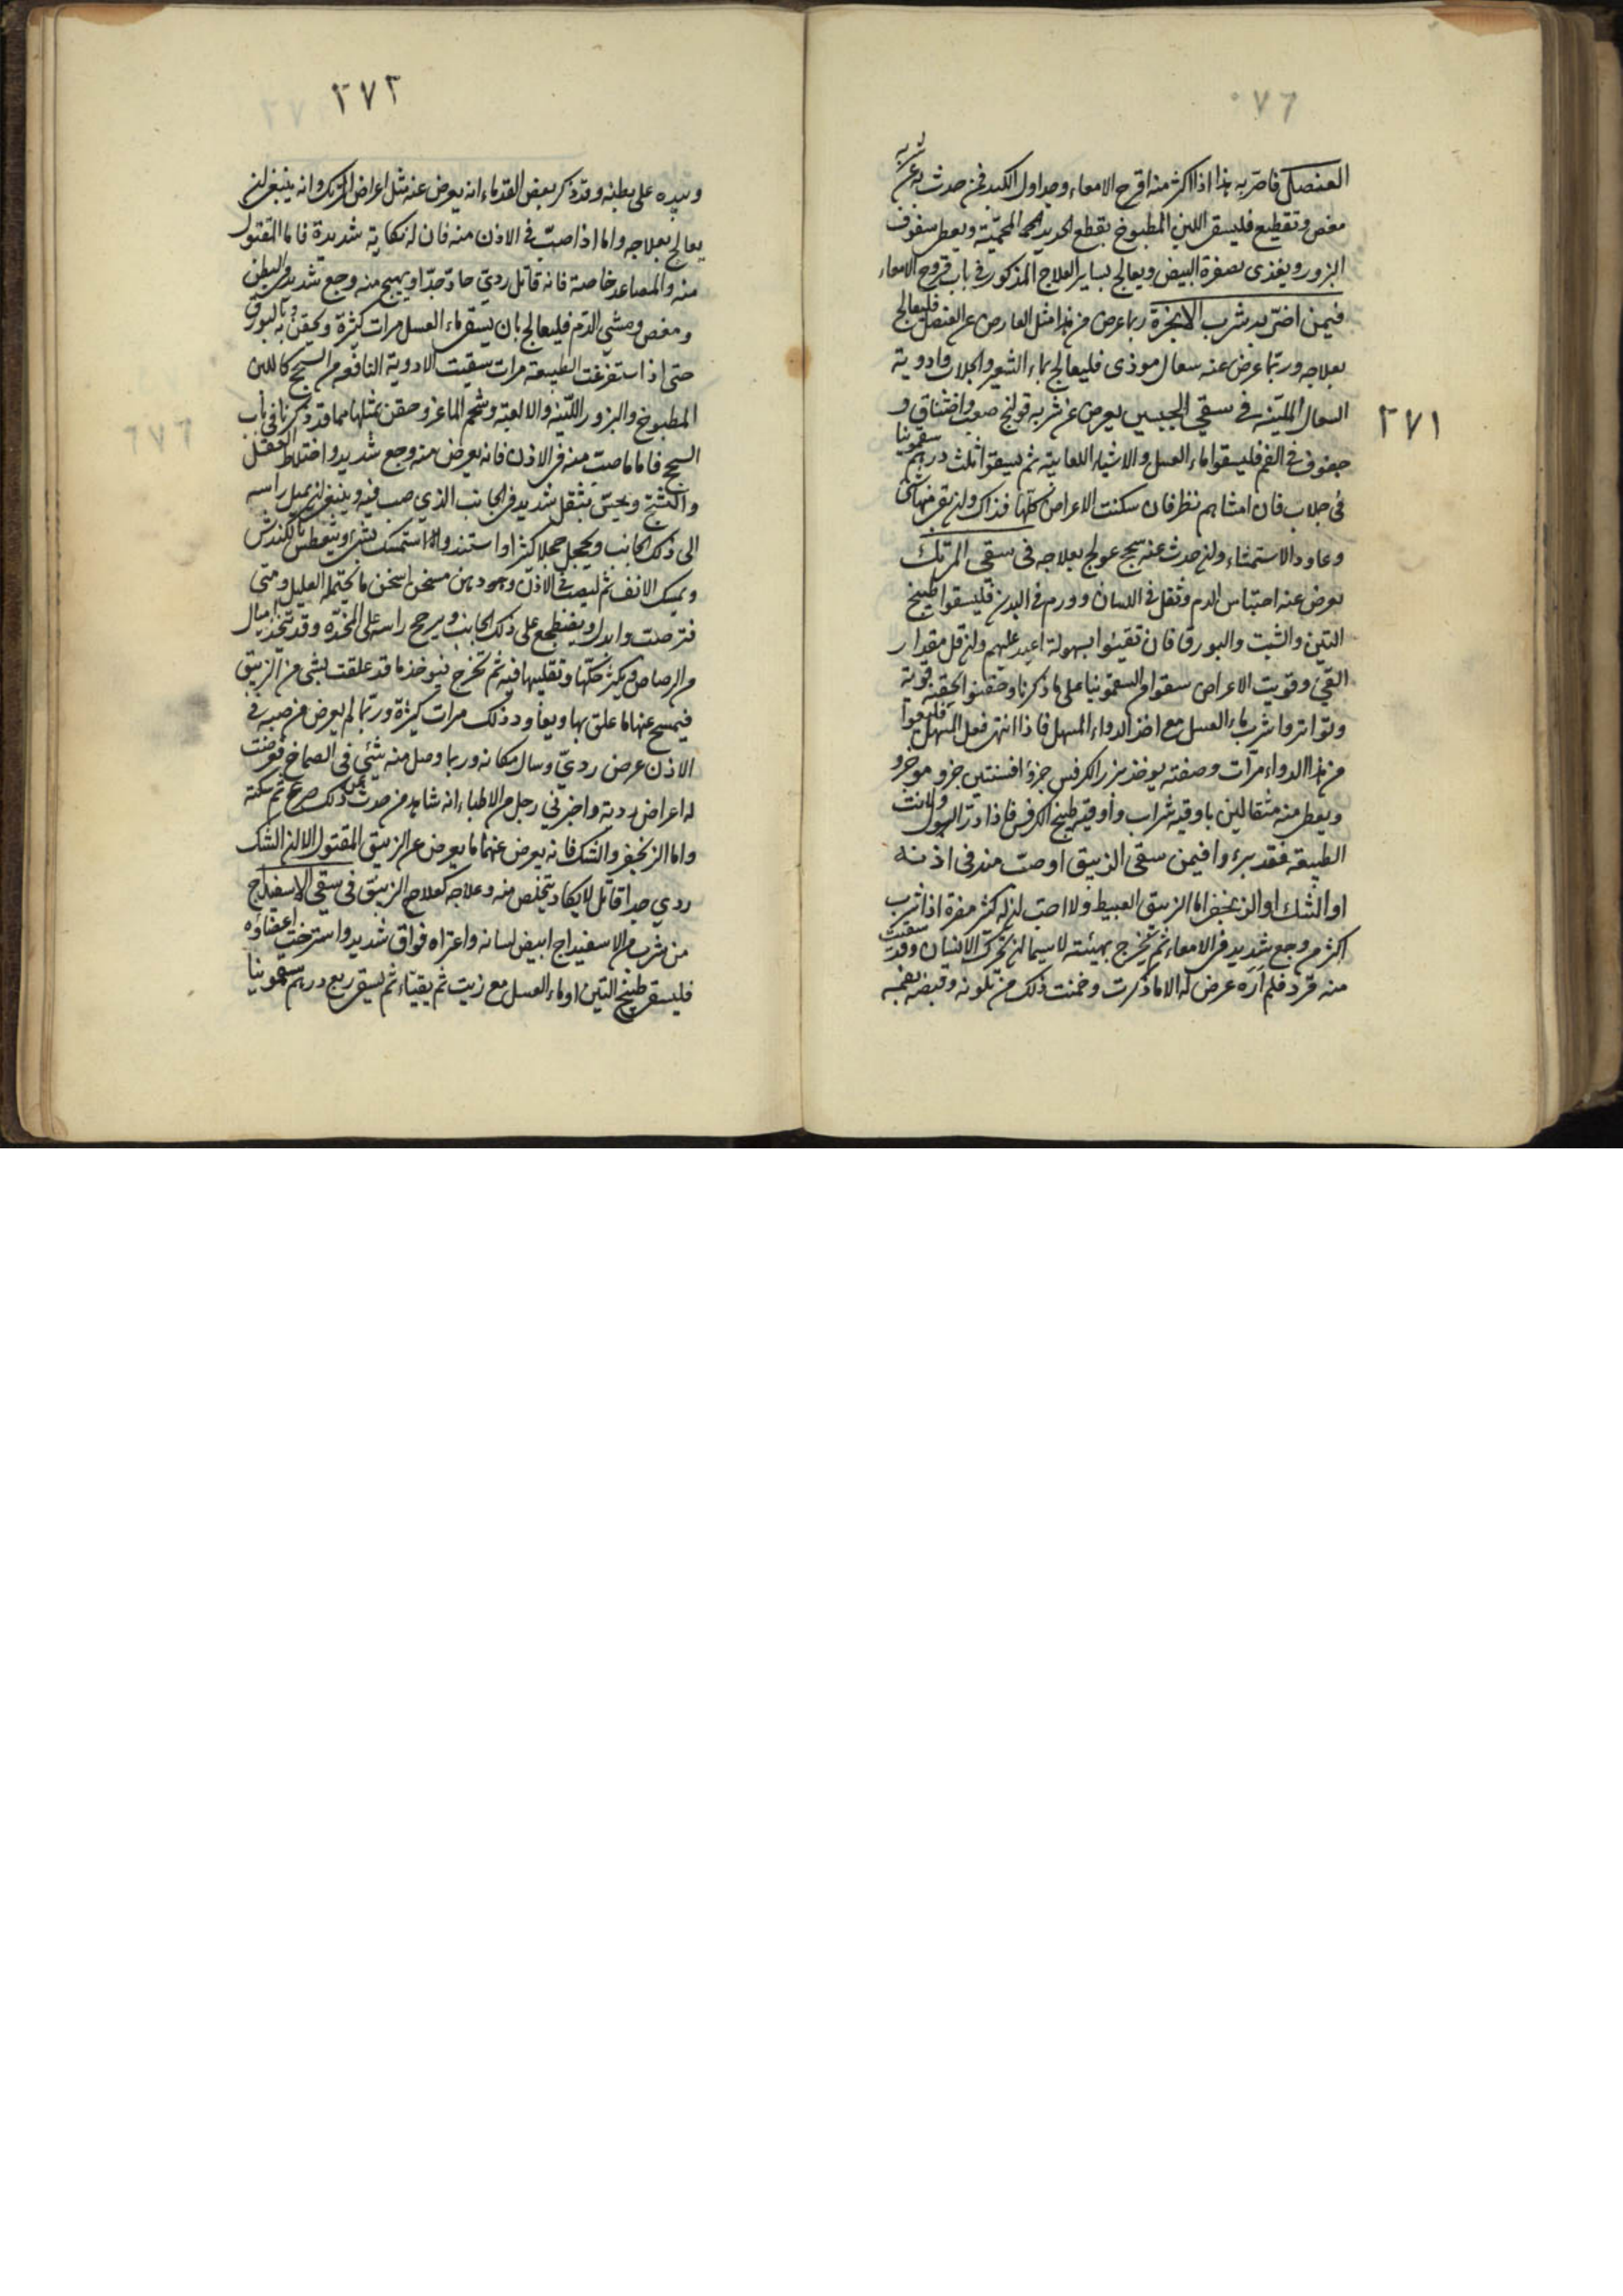 العنصل فاضر به هذا اذا اكثر منه اقرح الامعاء وجداول الكبد فمن حدث به عن شربه
مغص وتقطيع فليسق اللبن المطبوخ بقطع الحديد المحمية ويعطى سفوف
البزور ويغذى بصفرة البيض ويعالج بساير العلاج المذكور في باب قروح الامعاء
فيمن اضر به شرب الانجرة ربما عرض من هذا مثل العارض عن العنصل فليعالج
بعلاجه وربما عرض عنه سعال موذى فليعالج بماء الشعير والجلاب وادوية
السعال الملينه في سقي الجبسين يعرض عن شربه قولنج صعب واختناق و
جفوف في الفم فليسقوا ماء العسل والاشياء اللعابية ثم يسقوا ثلث درهم سقمونيا
في جلاب فان امشاهم نظر فان سكنت الاعراض كلها فذاك وان بقى منها شئ
وعاود الاستمشاء وان حدث عنه سحج عولج بعلاجه في سقي المرتك
يعرض عنه احتباس الدم وثقل في اللسان وورم في البدن فليسقوا طبيخ
التين والشبت والبورق فان تقيئوا بسهولة اعيد عليهم وان قل مقدار
القئ وقويت الاعراض سقوا من السقمونيا على ما ذكرنا وحقنوا بحقنة قوية
وتواتروا شرب ماء العسل مع اخذ الدواء المسهل فاذا انتهى فعل المسهل فليسقوا
من هذا الدواء مرات وصفته يوخذ بزر الكرفس جزؤ افسنتين جزؤ مر جزؤ
ويعطى منه مثقالين باوقية شراب واوقية طبيخ الكرفس فاذا ادر البول ولانت
الطبيعة فقد برء وا فيمن سقى الزيبق او صب منه في اذنه
او الشك او الزنجفر اما الزيبق العبيط فلا احسب ان له كثر مضرة اذا شرب
اكثر من وجع شديد في الامعاء ثم يخرج بهيئته لا سيما ان تحرك الانسان وقد سقيت
منه قردا فلم اره عرض له الا ما ذكرت وخمنت ذلك من تلونه وقبضه بفمه
وبيده على بطنه وقد ذكر بعض القدماء انه يعرض عنه مثل اعراض المرتك وانه ينبغي ان
يعالج بعلاجه واما اذا صب في الاذن منه فان له نكاية شديدة فاما المقتول
منه والمصاعد خاصة فانه قاتل ردي حاد جدا ويهيج منه وجع شديد في البطن
ومغص ومشي الدم فليعالج بان يسقى ماء العسل مرات كثيرة ويحقن به وبالبورق
حتى اذا استفرغت الطبيعة مرات سقيت الادوية النافعه من السحج كاللبن
المطبوخ والبزور اللينه والالعبة وشحم الماعز وحقن بمثلها مما قد ذكرنا في باب
السحج فاما ما صب منه في الاذن فانه يعرض منه وجع شديد واختلاط العقل
والتشنج ويحس بثقل شديد في الجانب الذي صب فيه وينبغي ان يميل راسه
الى ذلك الجانب ويحجل حجلا كثيرا او استند واستمسك بشئ ويتعطس بالكندش
ويمسك الانف ثم ليصب في الاذن وهو دهن مسخن اسخن ما يحتمله العليل ومتى
فترصب وابدل ويضطجع على ذلك الجانب ويرجح راسه على المخدة وقد تتخذ اميال
من الرصاص ويكثر حكها وتقليبها فيه ثم تخرج فيوخذ ما قد علقت بشئ من الزيبق
فيمسح عنها ما علق بها ويعاود ذلك مرات كثيرة وربما لم يعرض من صبه في
الاذن عرض ردي وسال مكانه وربما وصل منه شئ في الصماخ فعرضت
له اعراض ردية واخبرني رجل من الاطباء انه شاهد من حدث به عن ذلك صرع ثم سكتة
واما الزنجفر والشك فانه يعرض عنهما ما يعرض عن الزيبق المقتول الا ان الشك
ردي جدا قاتل لا يكاد يتخلص منه وعلاجه كعلاج الزيبق في سقي الاسفيداج
من شرب من الاسفيداج ابيض لسانه واعتراه فواق شديد واسترخت اعضاؤه
فليسق طبيخ التين او ماء العسل مع زيت ثم يقيّاء ثم يسقى ربع درهم سقمونيا
٢٧١
٢٧٢